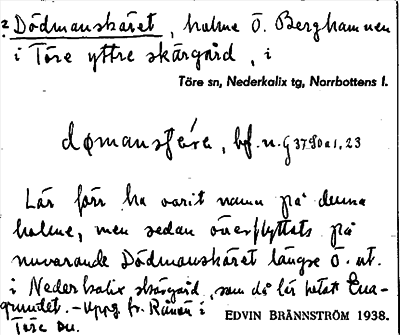 ? Dödmanskäret, holme Ö. Berghamnen
i Töre yttre skärgård, i
Töre sn, Nederkalix tg, Norrbottens l.
bf. n.
Lär förr ha varit namn på denna
holme, men sedan överflyttats på
nuvarande Dödmanskäret längre ö. ut.
i Nederkalix skärgård, som då lär hetat Ena-
grundet. - Uppg. fr. Rånön i
Töre sn.
EDVIN BRÄNNSTRÖM 1938.